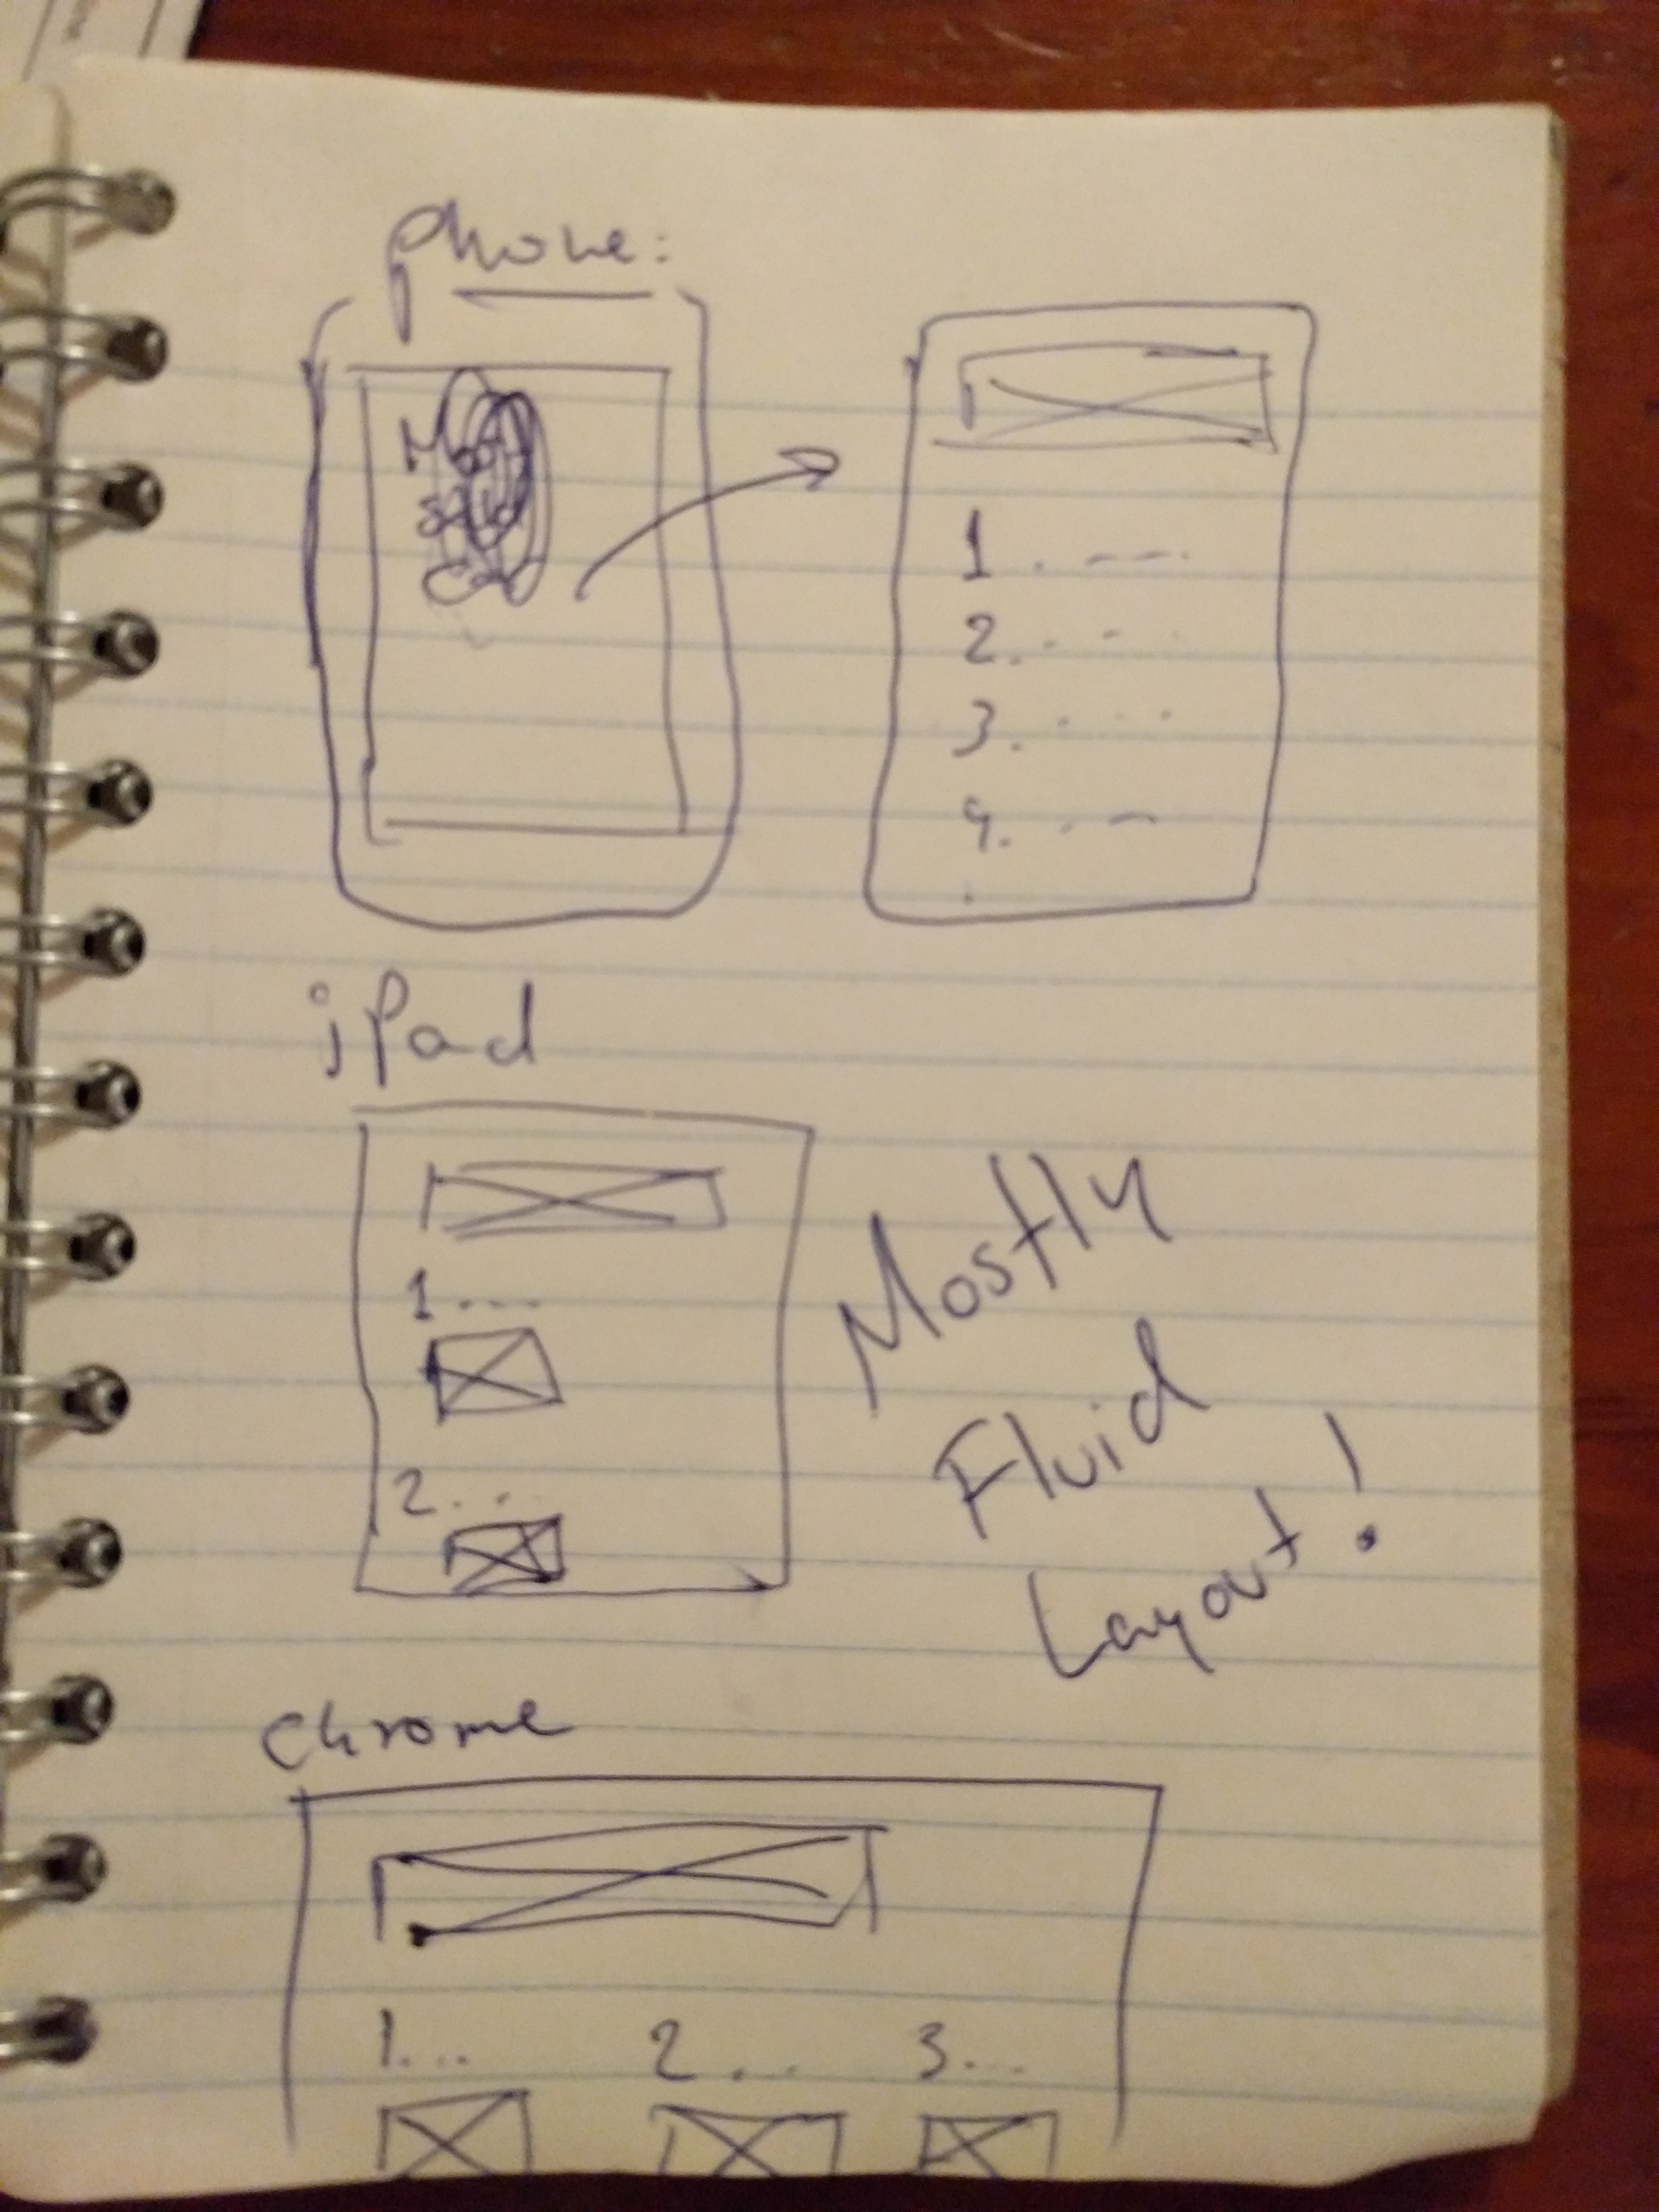 phone:
1. ---
2. - - -
3. - - -
4. - -
iPad
1 ----
2. - -
Mostly
Fluid
Layout!
Chrome
1...
2...
3...